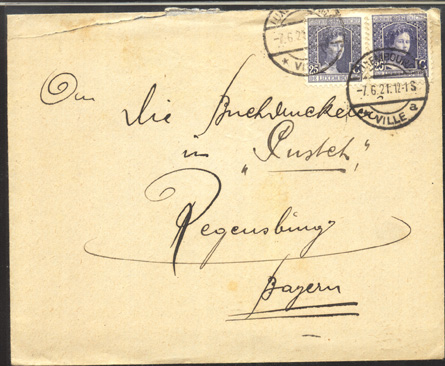 VI
25
LUXEMBOURG
-7.6.21
-7.6.21.12-1S
VILLE a
An
die Buchdruckerei
in "Pustet"
Regensburg
Bayern